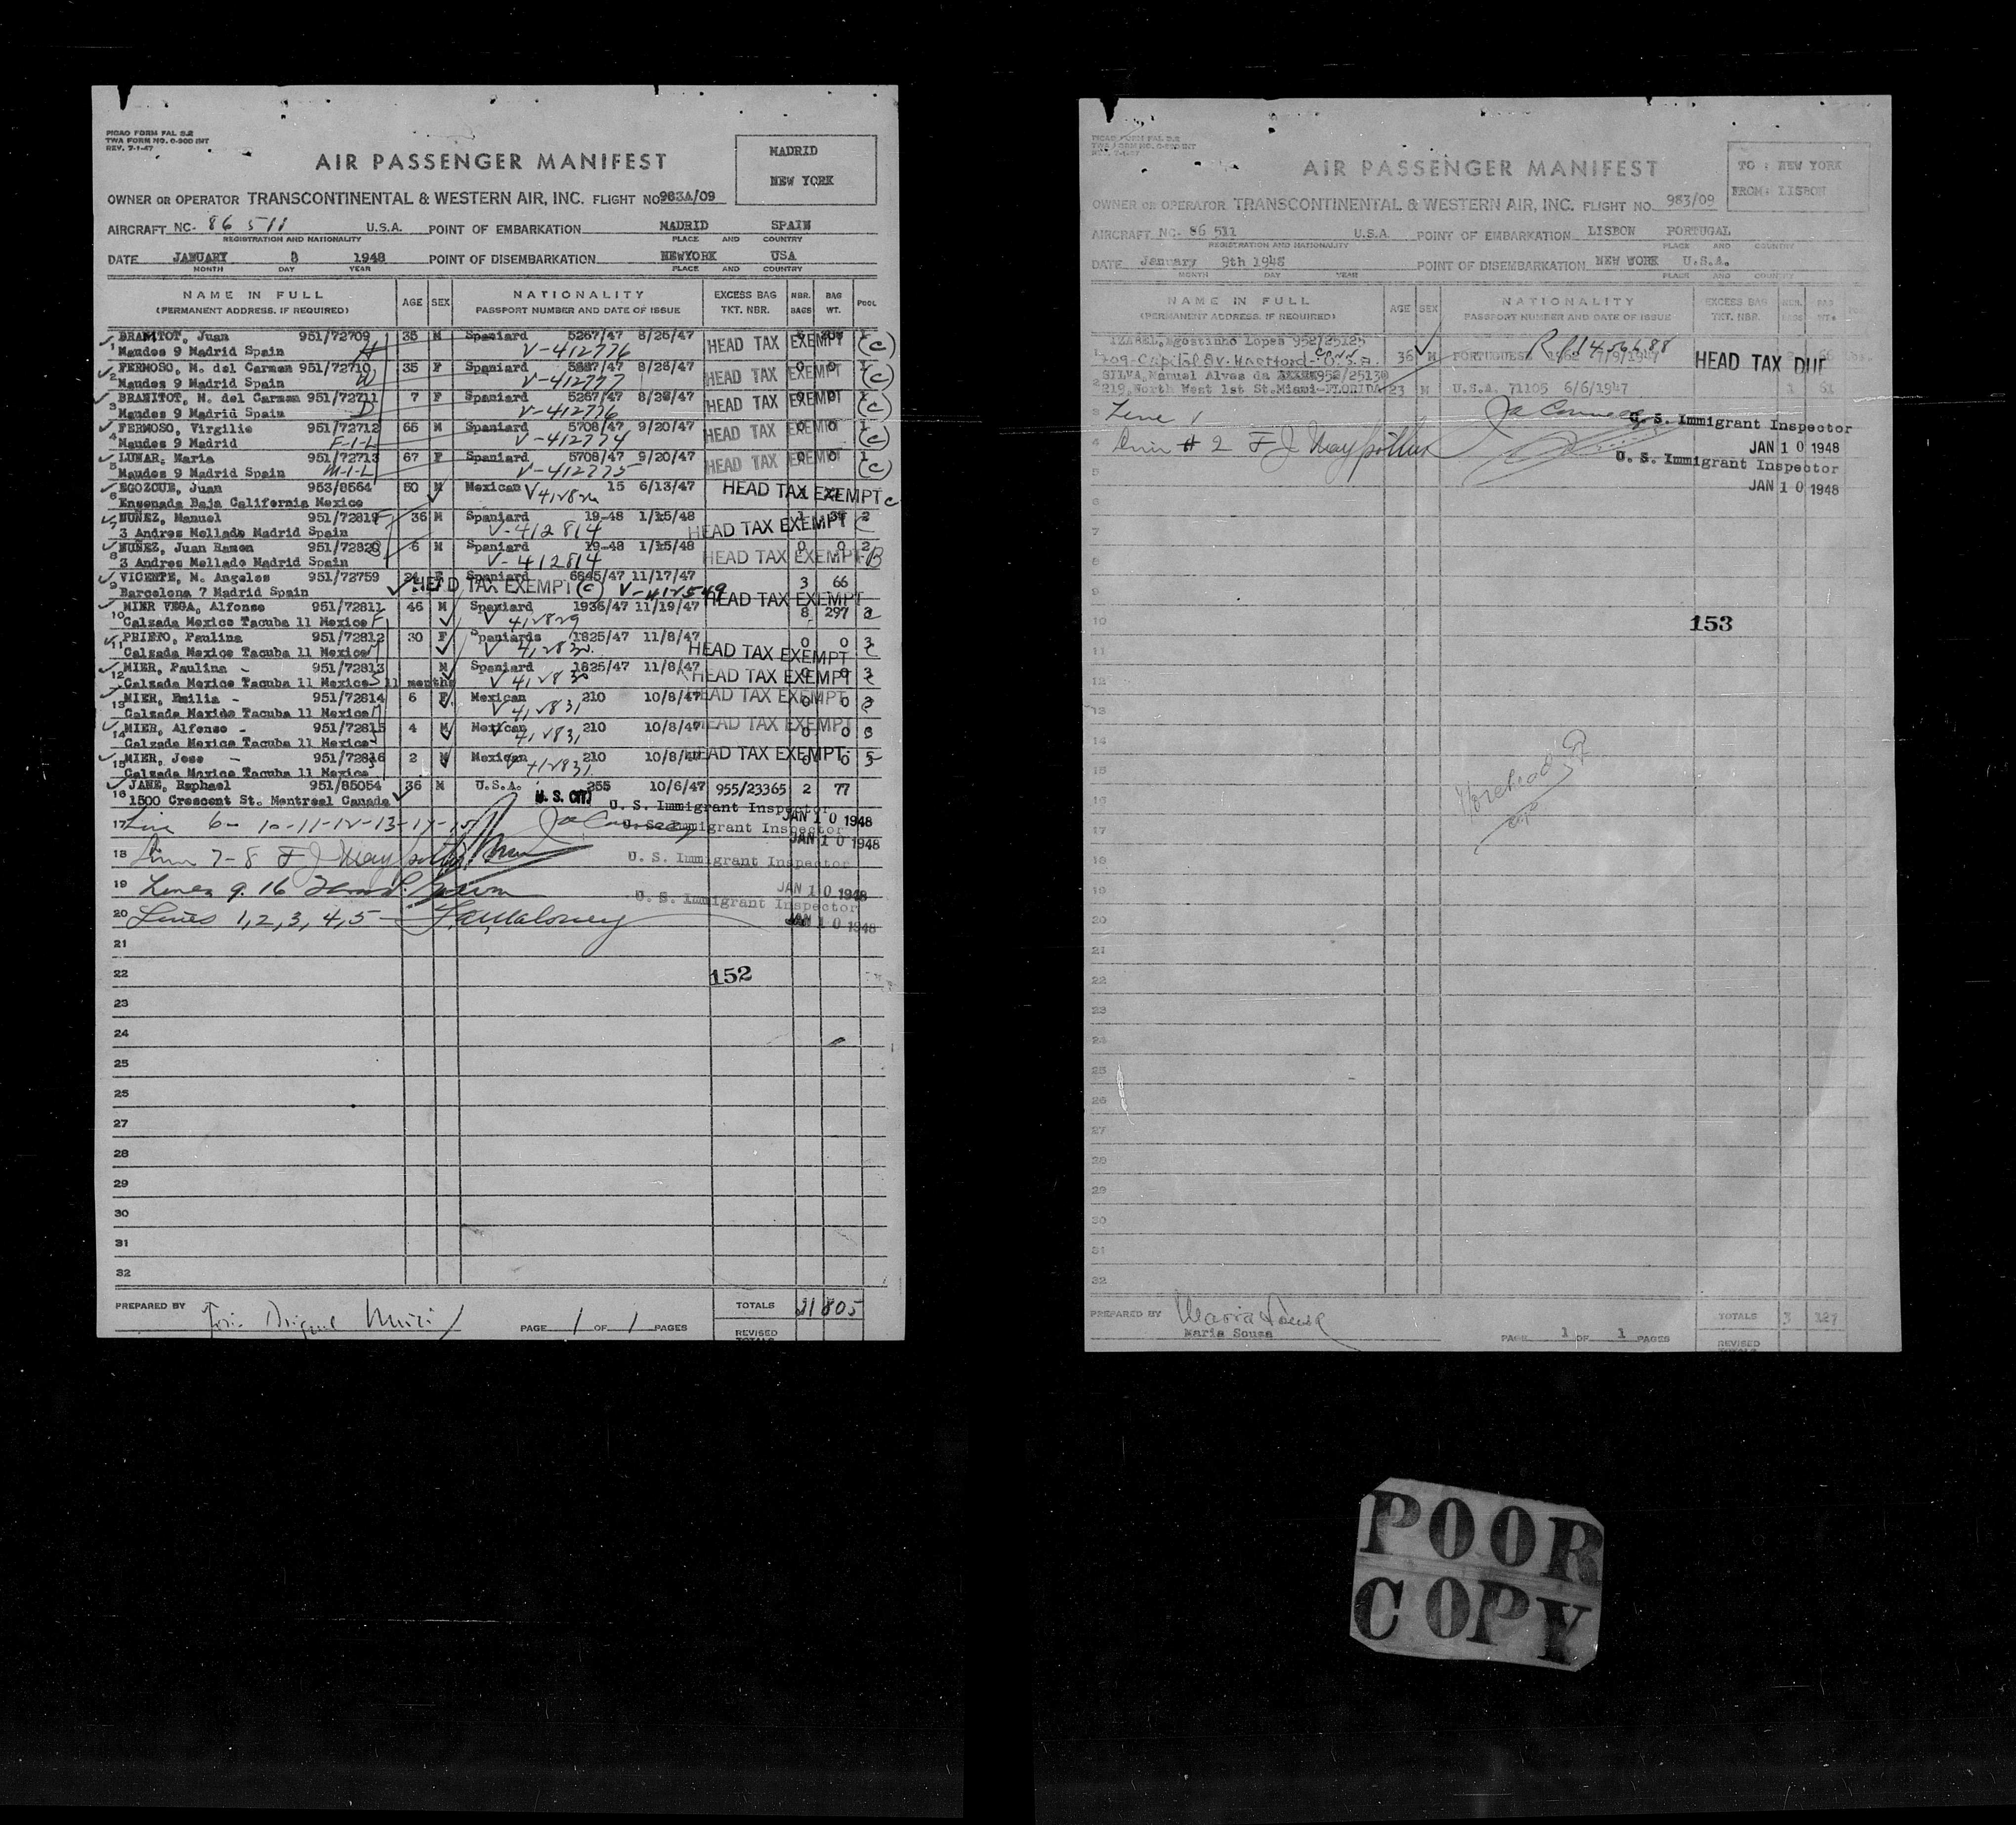 PICAO FORM FAL 2.2
TWA FORM NO. O-200 INT
REV. 7-1-47
AIR PASSENGER MANIFEST
MADRID
NEW YORK
OWNER OR OPERATOR TRANSCONTINENTAL & WESTERN AIR, INC. FLIGHT NO 983A/09
AIRCRAFT NC- 86 511 U.S.A. POINT OF EMBARKATION MADRID SPAIN
REGISTRATION AND NATIONALITY PLACE AND COUNTRY
DATE JANUARY 1948 POINT OF DISEMBARKATION NEWYORK USA
MONTH DAY YEAR PLACE AND COUNTRY
NAME IN FULL AGE SEX NATIONALITY EXCESS BAG NBR. BAG POOL
(PERMANENT ADDRESS, IF REQUIRED) PASSPORT NUMBER AND DATE OF ISSUE TKT. NBR. BAGS WT.
BRANITOT, Juan 951/72709 35 M Spaniard 5267/47 8/26/47 HEAD TAX EXEMPT
1 Mandes 9 Madrid Spain H V-412776 (C)
FERMOSO, M. del Carmen 951/72710 35 F Spaniard 5267/47 8/26/47 HEAD TAX EXEMPT
2 Mandes 9 Madrid Spain W V-412777 (C)
BRANITOT, M. del Carmen 951/72711 7 F Spaniard 5267/47 8/26/47 HEAD TAX EXEMPT
3 Mandes 9 Madrid Spain D V-412776 (C)
FERMOSO, Virgilio 951/72712 66 M Spaniard 5708/47 9/20/47 HEAD TAX EXEMPT
4 Mandes 9 Madrid F-I-L V-412774 (C)
LUNAR, Maria 951/72713 67 F Spaniard 5708/47 9/20/47 HEAD TAX EXEMPT
5 Mandes 9 Madrid Spain M-I-L V-412775 (C)
EGOZCUE, Juan 953/8564 50 M Mexican 15 6/13/47 HEAD TAX EXEMPT C
6 Ensenada Baja California Mexico
NUÑEZ, Manuel 951/72819 36 M Spaniard 19-48 1/15/48 HEAD TAX EXEMPT 2
7 3 Andres Mellado Madrid Spain V-412814
NUÑEZ, Juan Ramon 951/72820 6 M Spaniard 19-48 1/15/48 0 0 2
8 3 Andres Mellado Madrid Spain V-412814 HEAD TAX EXEMPT B
VICENTE, M. Angeles 951/72759 Spaniard 6645/47 11/17/47 3 66
9 Barcelona 7 Madrid Spain HEAD TAX EXEMPT (C) V-412549 HEAD TAX EXEMPT
MIER VEGA, Alfonso 951/72811 46 M Spaniard 1936/47 11/19/47 8 297
10 Calzada Mexico Tacuba 11 Mexico F V 412829
PRIETO, Paulina 951/72812 30 F Spaniards 1825/47 11/8/47 0 0
11 Calzada Mexico Tacuba 11 Mexico V 412830 HEAD TAX EXEMPT
MIER, Paulina - 951/72813 M Spaniard 1825/47 11/8/47
12 Calzada Mexico Tacuba 11 Mexico 11 months V 412830 HEAD TAX EXEMPT
MIER, Emilia - 951/72814 6 F Mexican 210 10/8/47 HEAD TAX EXEMPT
13 Calzada Mexico Tacuba 11 Mexico V 412831 0 0
MIER, Alfonso - 951/72815 4 M Mexican 210 10/8/47 HEAD TAX EXEMPT
14 Calzada Mexico Tacuba 11 Mexico 412831 0 0
MIER, Jose - 951/72816 2 M Mexican 210 10/8/47 HEAD TAX EXEMPT
15 Calzada Mexico Tacuba 11 Mexico 412831 0 0
JANE, Raphael 951/85054 36 M U.S.A. 255 10/6/47 955/23365 2 77
16 1500 Crescent St. Montreal Canada U.S. CIT. U. S. Immigrant Inspector
17 Line 6- 10-11-12-13-14-15 U. S. Immigrant Inspector JAN 10 1948
JAN 10 1948
18 Line 7-8 U. S. Immigrant Inspector
19 Lines 9. 16 JAN 10 1948
U. S. Immigrant Inspector
20 Lines 1,2,3,4,5 - F.A. Maloney JAN 10 1948
21
22 152
23
24
25
25
27
28
29
30
31
32
PREPARED BY TOTALS 21 805
PAGE 1 OF 1 PAGES
REVISED TOTALS
PICAO FORM FAL 2.2
TWA FORM NO. O-200 INT
REV. 7-1-47
AIR PASSENGER MANIFEST
TO : NEW YORK
FROM: LISBON
OWNER OR OPERATOR TRANSCONTINENTAL & WESTERN AIR, INC. FLIGHT NO. 983/09
AIRCRAFT NC- 86 511 U.S.A. POINT OF EMBARKATION LISBON PORTUGAL
REGISTRATION AND NATIONALITY PLACE AND COUNTRY
DATE January 9th 1948 POINT OF DISEMBARKATION NEW YORK U.S.A.
MONTH DAY YEAR PLACE AND COUNTRY
NAME IN FULL AGE SEX NATIONALITY EXCESS BAG
(PERMANENT ADDRESS, IF REQUIRED) PASSPORT NUMBER AND DATE OF ISSUE TKT. NBR.
IZABEL, Agostinho Lopes 952/25125 Conn.
1 Capitol Av. Hartford-U.S.A. 36 M PORTUGUESE HEAD TAX DUE
SILVA, Manuel Alves da
2 219, North West 1st St. Miami-FLORIDA 23 M U.S.A. 71105 6/6/1947 1 61
3 Line 1 U. S. Immigrant Inspector
4 Line # 2 JAN 10 1948
5 U. S. Immigrant Inspector
JAN 10 1948
6
7
8
9
10 153
11
12
13
14
15
16
17
18
19
20
21
22
23
24
25
26
27
28
29
30
31
32
PREPARED BY Maria Sousa TOTALS 3 127
Maria Sousa PAGE 1 OF 1 PAGES
REVISED
POOR
COPY